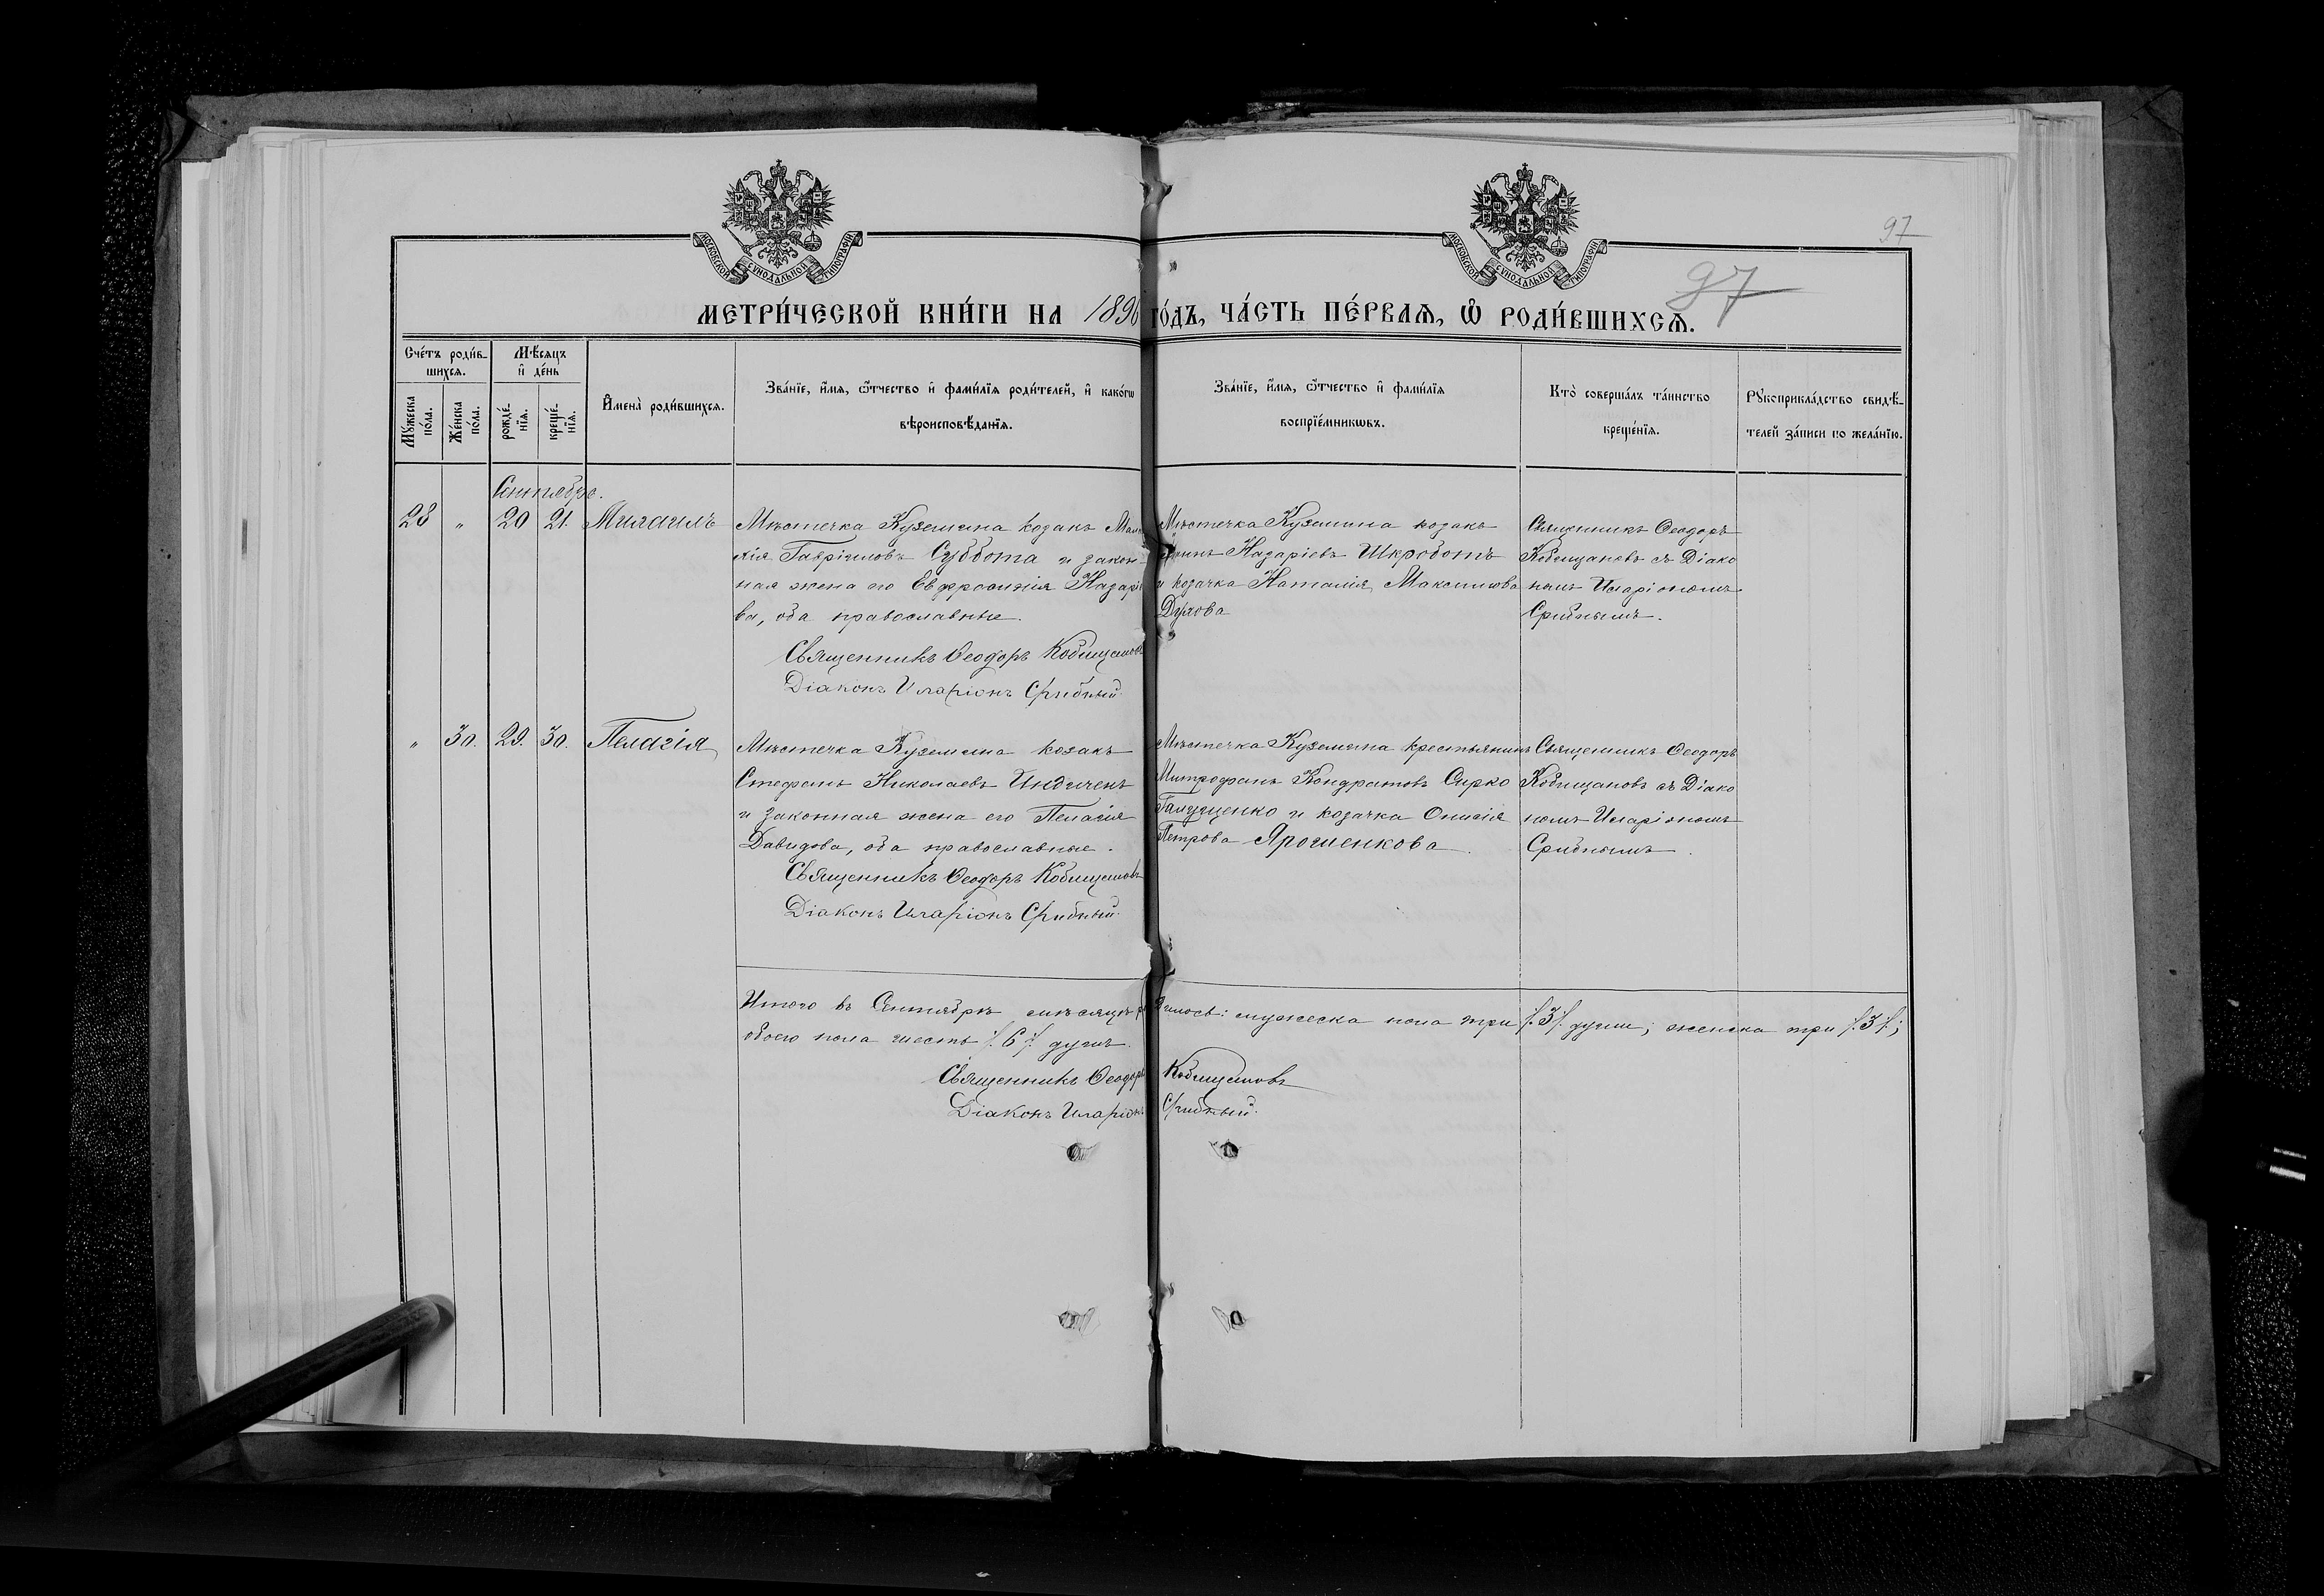 МОСКОВСКОЙ СѴНОДАЛЬНОЙ ТИПОГРАФІИ
МОСКОВСКОЙ СѴНОДАЛЬНОЙ ТИПОГРАФІИ
97
97
МЕТРИ́ЧЕСКОЙ КНИ́ГИ НА 1896 ГО́ДЪ, ЧА́СТЬ ПЕ́РВАѦ, Ѡ҆ РОДИ́ВШИХСѦ.
Сче́тъ роди́в-
шихсѧ.
Мꙋ́жеска по́ла.
Же́нска по́ла.
Мѣ́сѧцъ
и҆ де́нь
рожде́-
нїѧ.
креще́-
нїѧ.
И҆мена̀ роди́вшихсѧ.
Зва́нїе, и҆́мѧ, ѻ҆́тчество и҆ фами́лїѧ роди́телей, и҆ како́гѡ
вѣроисповѣ́данїѧ.
Зва́нїе, и҆́мѧ, ѻ҆́тчество и҆ фами́лїѧ
воспрїе́мникѡвъ.
Кто̀ соверша́лъ та́инство
креще́нїѧ.
Рꙋкоприкла́дство свидѣ́-
телей за́писи по жела́нїю.
Сентябрь.
28 " 20 21. Михаилъ
Мѣстечка Куземина козакъ
хія Гавріиловъ Суббота и закон-
ная жена его Евфросинія Назарі
ва, оба православные.
Священникъ Ѳеодоръ Кобищановъ
Діаконъ Иларіонъ Срибный.
Мѣстечка Куземина козакъ
Назаріевъ Шкроботъ
и козачка Наталія Максимова
Духова
Священникъ Ѳеодоръ
Кобищановъ съ Діако
номъ Иларіономъ
Срибнымъ.
" 30. 29. 30. Пелагія
Мѣстечка Куземина козакъ
Стефанъ Николаевъ Индиченъ
и законная жена его Пелагія
Давидова, оба православные.
Священникъ Ѳеодоръ Кобищановъ
Діаконъ Иларіонъ Срибный.
Мѣстечка Куземина крестьянинъ
Митрофанъ Кондратовъ Сирко
Галущенко и козачка Онисія
Петрова Ярошенкова.
Священникъ Ѳеодоръ
Кобищановъ съ Діако
номъ Иларіономъ
Срибнымъ.
Итого въ Сентябрѣ мѣсяцѣ родилось: мужеска пола три /.3/. души; женска три /.3/.;
обоего пола шесть /.6/. душъ.
Священникъ Ѳеодоръ Кобищановъ
Діаконъ Иларіонъ Срибный.